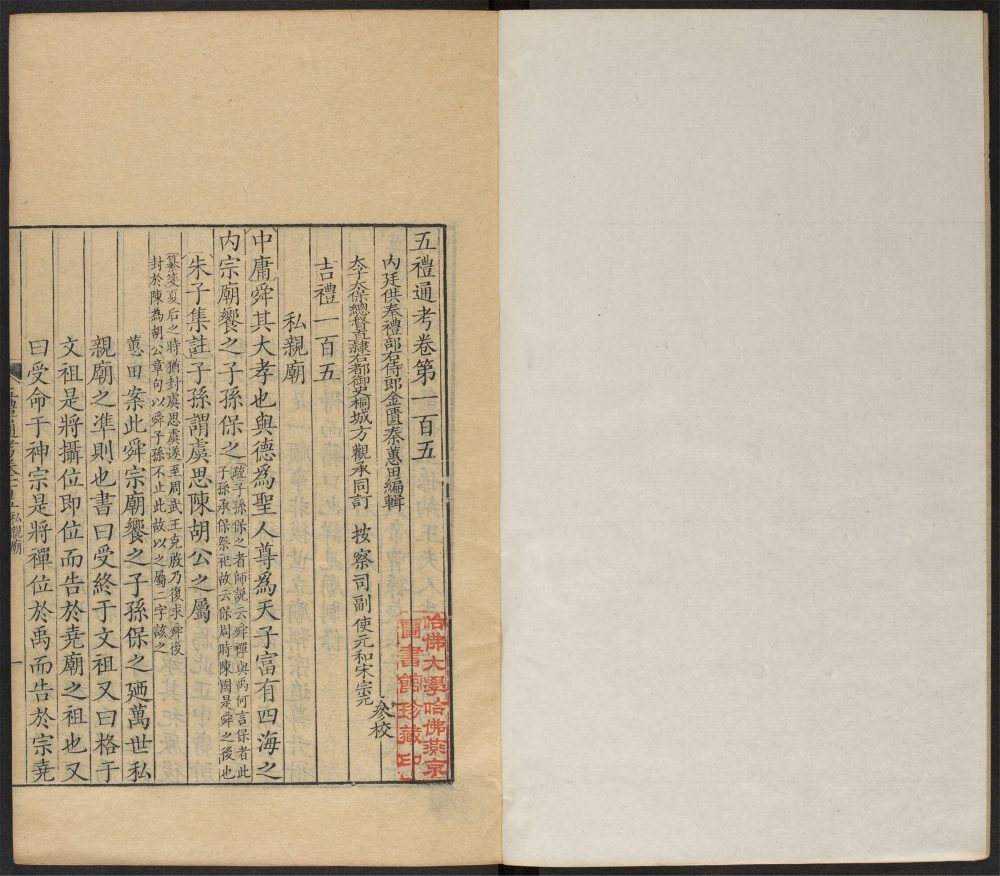 五禮通考卷第一百五
內廷供奉禮部右侍郎金匱秦蕙田編輯
太子太保總督直隸右都御史桐城方觀承同訂
按察司副使元和宋宗元參校
吉禮一百五
私親廟
中庸舜其大孝也與德爲聖人尊爲天子富有四海之
內宗廟饗之子孫保之
疏子孫保之者師說云舜禪與禹何言保者此
子孫承保祭祀故云保周時陳國是舜之後也
朱子集註子孫謂虞思陳胡公之屬
纂箋夏后之時猶封虞思虞遂至周武王克殷乃復求舜後
封於陳爲胡公章句以舜子孫不止此故以之屬二字該之
蕙田案此舜宗廟饗之子孫保之廼萬世私
親廟之準則也書曰受終于文祖又曰格于
文祖是將攝位即位而告於堯廟之祖也又
曰受命于神宗是將禪位於禹而告於宗堯
一
哈佛大學哈佛燕京
圖書館珍藏印